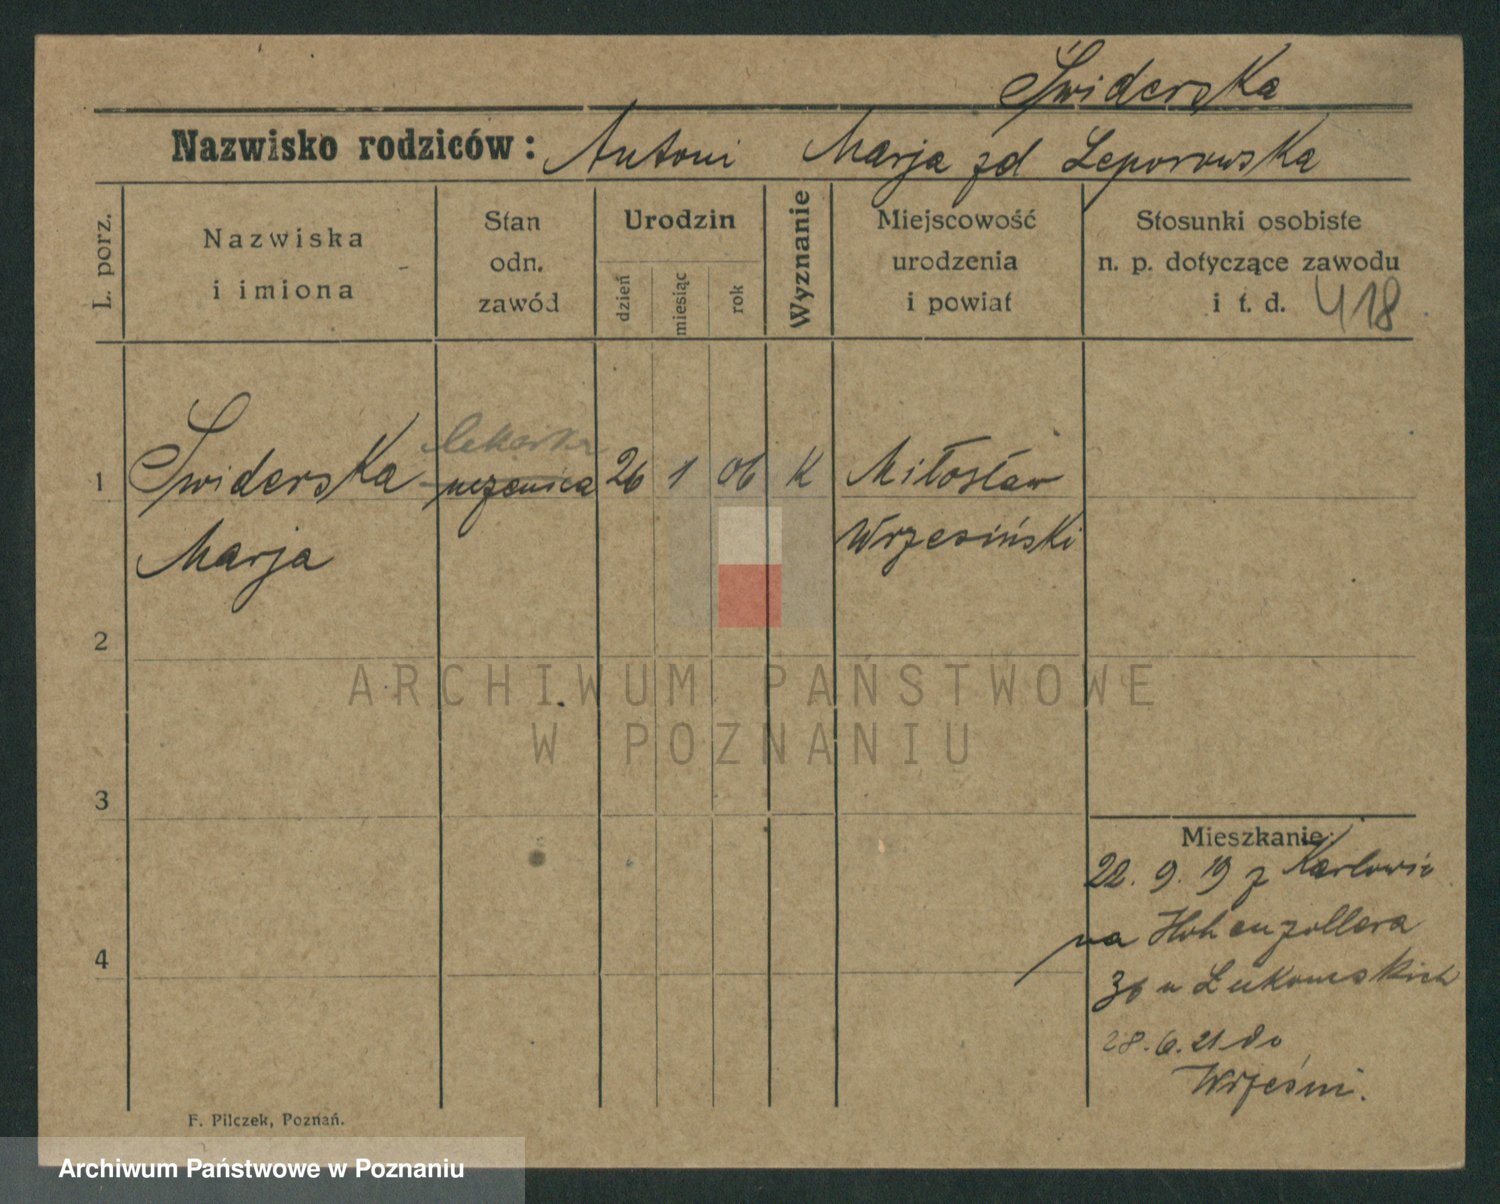 Świderska
Nazwisko rodziców: Antoni Marja zd Leporowska
L. porz.
Nazwiska
i imiona
Stan
odn.
zawód
Urodzin
dzień
miesiąc
rok
Wyznanie
Miejscowość
urodzenia
i powiat
Stosunki osobiste
n. p. dotyczące zawodu
i t. d. 418
lekarka
1 Świderska uczenica 26 1 06 K Miłosław
Marja Wrzesiński
2
3
4
Mieszkanie:
22. 9. 19 z Karlowic
na Hohenzollera
36 u Łukomskich
28. 6. 21 do
Wrześni.
F. Pilczek, Poznań.
ARCHIWUM PAŃSTWOWE
W POZNANIU
Archiwum Państwowe w Poznaniu